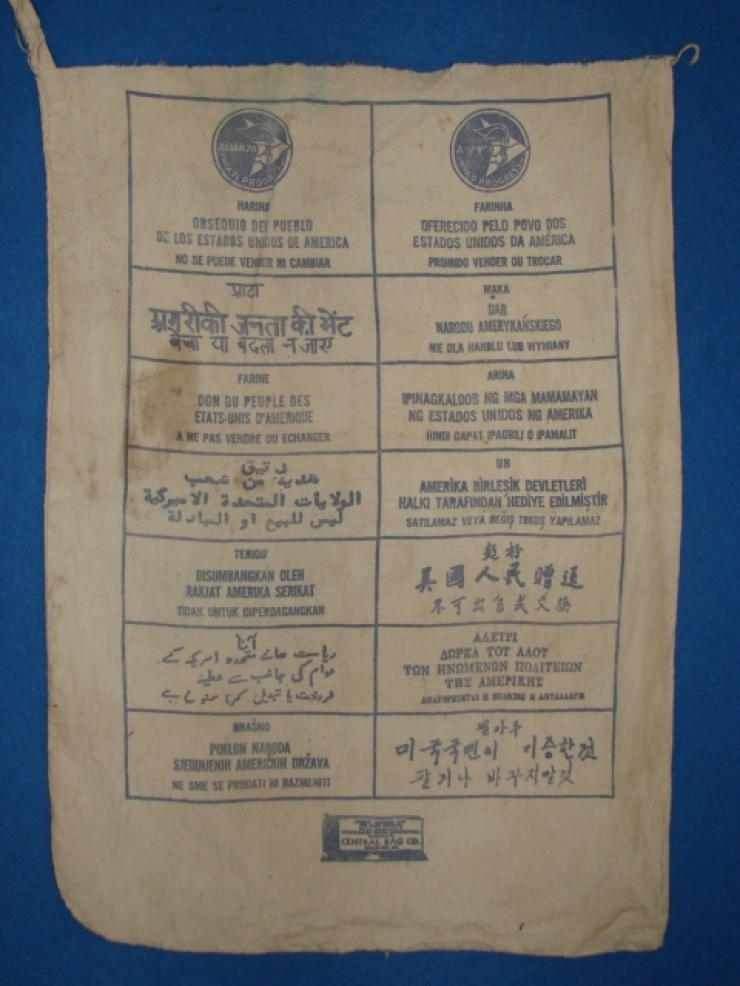 ALIANZA
PARA EL PROGRESO
HARINA
OBSEQUIO DEL PUEBLO
DE LOS ESTADOS UNIDOS DE AMERICA
NO SE PUEDE VENDER NI CAMBIAR
PROGRESSO
FARINHA
OFERECIDO PELO POVO DOS
ESTADOS UNIDOS DA AMÉRICA
PROIBIDO VENDER OU TROCAR
आटा
अमरीकी जनता की भेंट
बेचा या बदला न जाए
MAKA
DAR
NARODU AMERYKAŃSKIEGO
NIE DLA HANDLU LUB WYMIANY
FARINE
DON DU PEUPLE DES
ETATS-UNIS D'AMERIQUE
A NE PAS VENDRE OU ECHANGER
ARINA
IPINAGKALOOB NG MGA MAMAMAYAN
NG ESTADOS UNIDOS NG AMERIKA
HINDI DAPAT IPAGBILI O IPAMALIT
دقيق
هدية من شعب
الولايات المتحدة الاميركية
ليس للبيع او المبادلة
UN
AMERİKA BİRLEŞİK DEVLETLERİ
HALKI TARAFINDAN HEDİYE EDİLMİŞTİR
SATILAMAZ VEYA DEĞİŞ TOKUŞ YAPILAMAZ
TERIGU
DISUMBANGKAN OLEH
RAKJAT AMERIKA SERIKAT
TIDAK UNTUK DIPERDAGANGKAN
麵粉
美國人民贈送
不可出售或交換
آٹا
ریاست ہائے متحدہ امریکہ کے
عوام کی جانب سے عطیہ
فروخت یا تبدیل کرنا ممنوع ہے
ΑΛΕΥΡΙ
ΔΩΡΕΑ ΤΟΥ ΛΑΟΥ
ΤΩΝ ΗΝΩΜΕΝΩΝ ΠΟΛΙΤΕΙΩΝ
ΤΗΣ ΑΜΕΡΙΚΗΣ
ΑΠΑΓΟΡΕΥΕΤΑΙ Η ΠΩΛΗΣΙΣ Η ΑΝΤΑΛΛΑΓΗ
BRAŠNO
POKLON NARODA
SJEDINJENIH AMERIČKIH DRŽAVA
NE SME SE PRODATI NI RAZMENITI
밀가루
미국국민이 기증한것
팔거나 바꾸지말것
CENTRAL BAG CO.